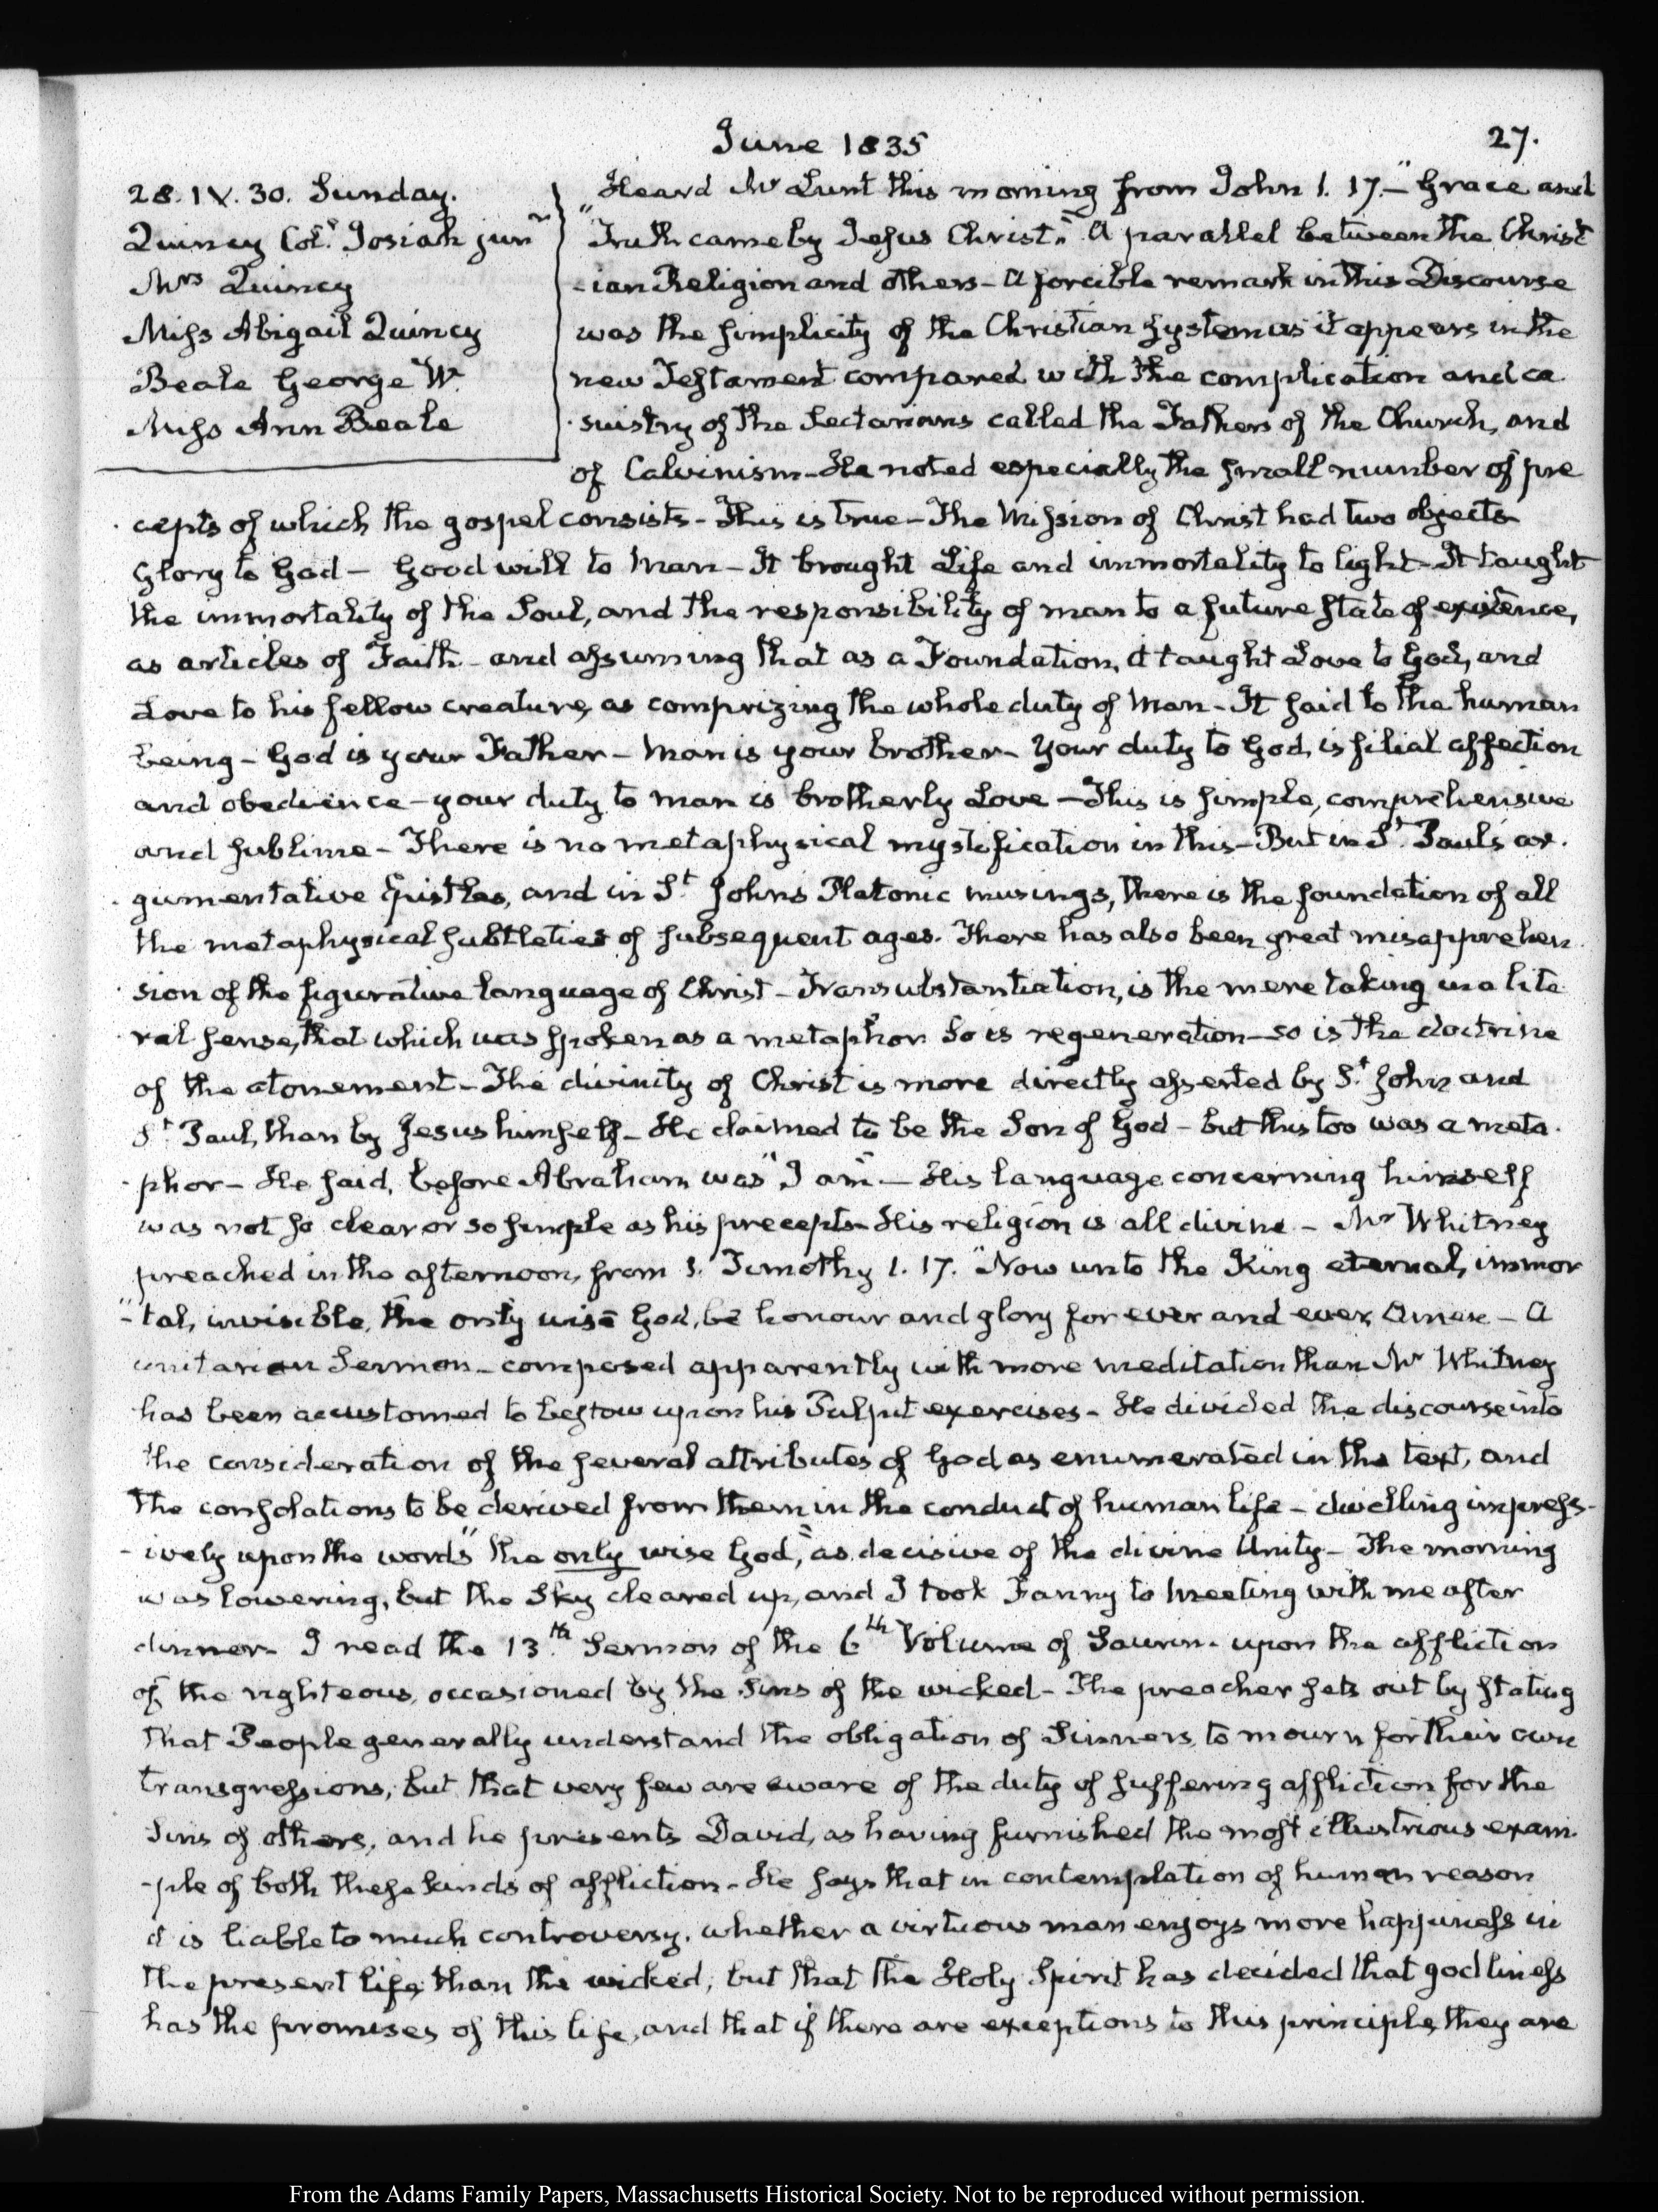 June 1835
27.
28. IV. 30. Sunday.
Quincy Col.l Josiah junr
Mrs Quincy
Miss Abigail Quincy
Beale George W.
Miss Ann Beale
Heard Mr Lunt this morning from John 1. 17.—"Grace and
"Truth came by Jesus Christ." A parallel between the Christ
-ian Religion and others— A forcible remark in this Discourse
was the simplicity of the Christian system as it appears in the
new Testament compared with the complication and ca
-suistry of the Sectarians called the Fathers of the Church, and
of Calvinism— He noted especially the small number of pre
-cepts of which the gospel consists— This is true— The Mission of Christ had two objects
Glory to God— Good will to Man— It brought Life and immortality to light— It taught
the immortality of the Soul, and the responsibility of man to a future state of existence,
as articles of Faith— and assuming that as a Foundation, it taught Love to God, and
Love to his fellow creature, as comprizing the whole duty of Man— It said to the human
being— God is your Father— Man is your brother— Your duty to God, is filial affection
and obedience— your duty to man is brotherly Love— This is simple, comprehensive
and sublime— There is no metaphysical mystification in this— But in St. Paul's ar-
-gumentative Epistles, and in St. John's Platonic musings, there is the foundation of all
the metaphysical subtleties of subsequent ages. There has also been great misapprehen
-sion of the figurative language of Christ— Transubstantiation, is the mere taking in a lite
-ral sense, that which was spoken as a metaphor So is regeneration— so is the doctrine
of the atonement— The divinity of Christ is more directly asserted by St. John and
St. Paul, than by Jesus himself— He claimed to be the Son of God— but this too was a meta-
-phor— He said, before Abraham was "I am"— His language concerning himself
was not so clear or so simple as his precepts— His religion is all divine— Mr Whitney
preached in the afternoon, from 1. Timothy 1. 17. "Now unto the King eternal, immor
"-tal, invisible, the only wise God, be honour and glory for ever and ever, Amen— A
unitarian Sermon— composed apparently with more meditation than Mr Whitney
has been accustomed to bestow upon his Pulpit exercises— He divided the discourse into
the consideration of the several attributes of God as enumerated in the text, and
the consolations to be derived from them in the conduct of human life— dwelling impress-
-ively upon the words "the only wise God," as decisive of the divine Unity— The morning
was lowering, but the Sky cleared up, and I took Fanny to Meeting with me after
dinner— I read the 13.th Sermon of the 6th Volume of Saurin. upon the affliction
of the righteous, occasioned by the Sins of the wicked— The preacher sets out by stating
that People generally understand the obligation of Sinners, to mourn for their own
transgressions, but that very few are aware of the duty of suffering affliction for the
Sins of others, and he presents David, as having furnished the most illustrious exam-
-ple of both these kinds of affliction— He says that in contemplation of human reason
it is liable to much controversy, whether a virtuous man enjoys more happiness in
the present life, than the wicked; but that the Holy Spirit has decided that godliness
has the promises of this life, and that if there are exceptions to this principle, they are
From the Adams Family Papers, Massachusetts Historical Society. Not to be reproduced without permission.